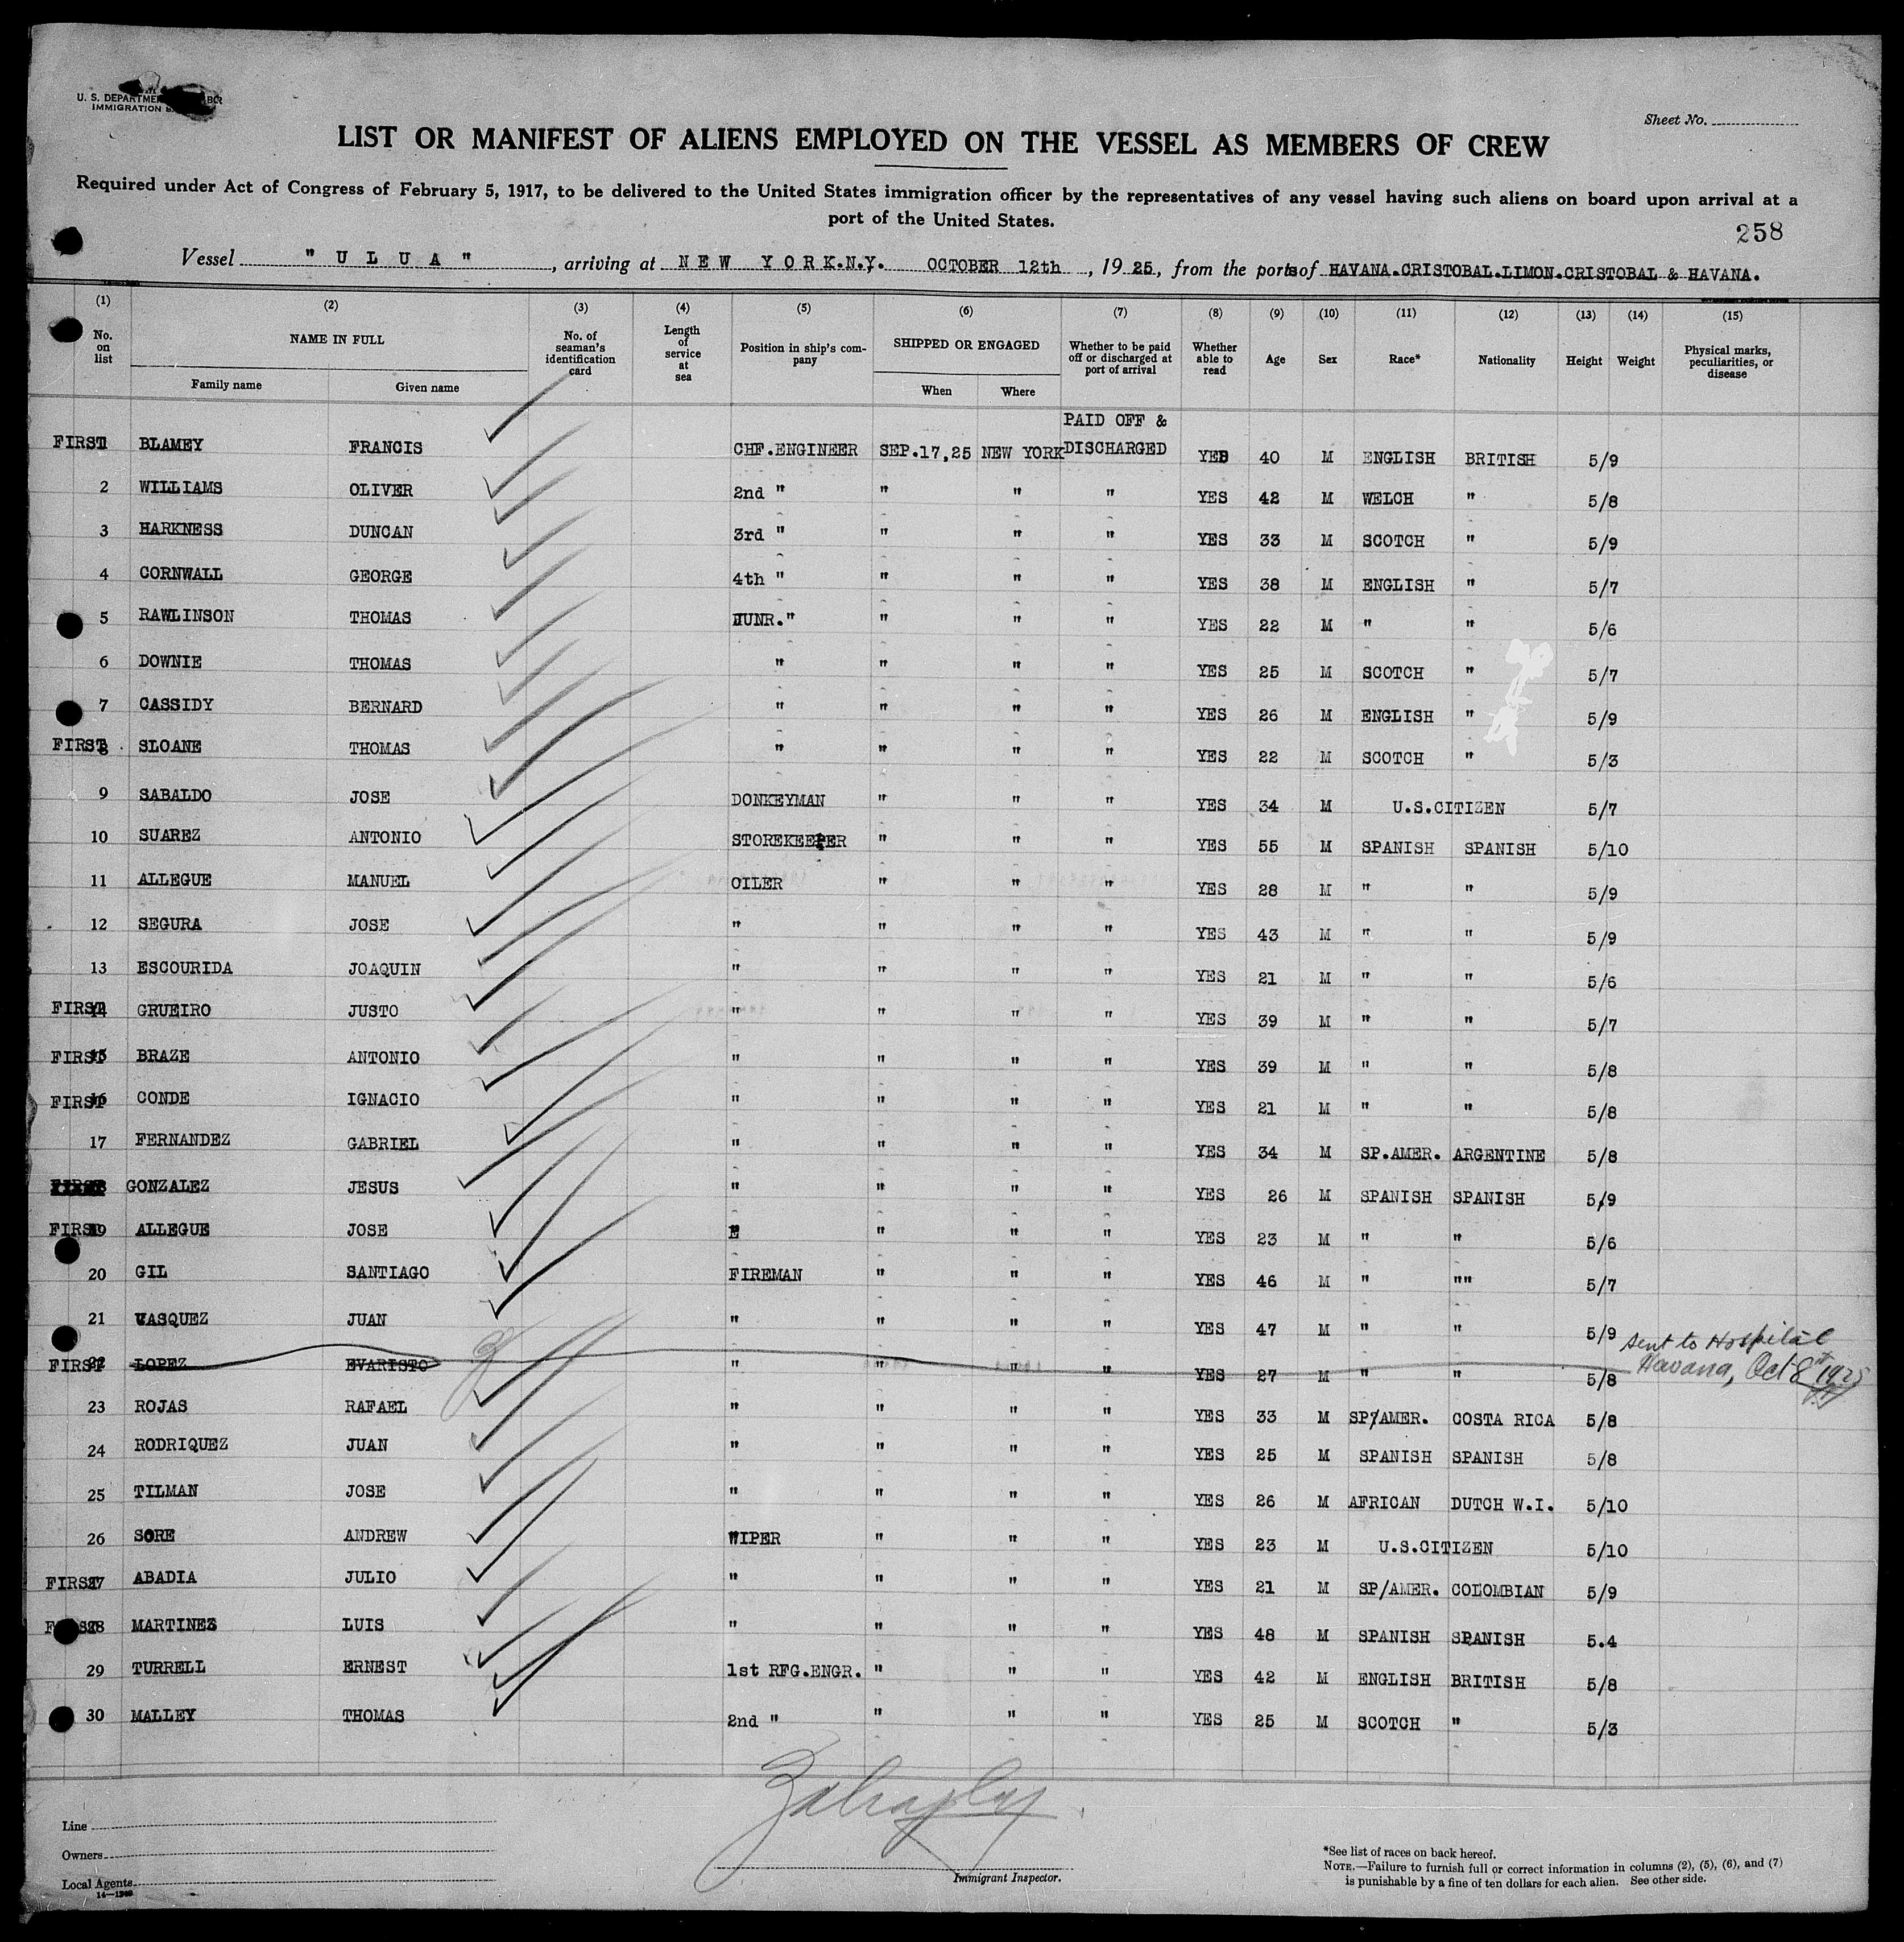 U. S. DEPARTME
IMMIGRATION
Sheet No.
LIST OR MANIFEST OF ALIENS EMPLOYED ON THE VESSEL AS MEMBERS OF CREW
Required under Act of Congress of February 5, 1917, to be delivered to the United States immigration officer by the representatives of any vessel having such aliens on board upon arrival at a
port of the United States.
258
Vessel "ULUA", arriving at NEW YORK.N.Y. OCTOBER 12th, 1925, from the ports of HAVANA.CRISTOBAL.LIMON.CRISTOBAL & HAVANA.
(1) (2) (3) (4) (5) (6) (7) (8) (9) (10) (11) (12) (13) (14) (15)
No. on list NAME IN FULL Family name Given name No. of seaman's identification card Length of service at sea Position in ship's company SHIPPED OR ENGAGED When Where Whether to be paid off or discharged at port of arrival Whether able to read Age Sex Race* Nationality Height Weight Physical marks, peculiarities, or disease
PAID OFF &
FIRST 1 BLAMEY FRANCIS CHF.ENGINEER SEP.17,25 NEW YORK DISCHARGED YES 40 M ENGLISH BRITISH 5/9
2 WILLIAMS OLIVER 2nd " " " " YES 42 M WELCH " 5/8
3 HARKNESS DUNCAN 3rd " " " " YES 33 M SCOTCH " 5/9
4 CORNWALL GEORGE 4th " " " " YES 38 M ENGLISH " 5/7
5 RAWLINSON THOMAS JUNR." " " " YES 22 M " " 5/6
6 DOWNIE THOMAS " " " " YES 25 M SCOTCH " 5/7
7 CASSIDY BERNARD " " " " YES 26 M ENGLISH " 5/9
FIRST 8 SLOANE THOMAS " " " " YES 22 M SCOTCH " 5/3
9 SABALDO JOSE DONKEYMAN " " " YES 34 M U.S.CITIZEN 5/7
10 SUAREZ ANTONIO STOREKEEPER " " " YES 55 M SPANISH SPANISH 5/10
11 ALLEGUE MANUEL OILER " " " YES 28 M " " 5/9
12 SEGURA JOSE " " " " YES 43 M " " 5/9
13 ESCOURIDA JOAQUIN " " " " YES 21 M " " 5/6
FIRST 14 GRUEIRO JUSTO " " " " YES 39 M " " 5/7
FIRST 15 BRAZE ANTONIO " " " " YES 39 M " " 5/8
FIRST 16 CONDE IGNACIO " " " " YES 21 M " " 5/8
17 FERNANDEZ GABRIEL " " " " YES 34 M SP.AMER. ARGENTINE 5/8
GONZALEZ JESUS " " " " YES 26 M SPANISH SPANISH 5/9
FIRST 19 ALLEGUE JOSE " " " YES 23 M " " 5/6
20 GIL SANTIAGO FIREMAN " " " YES 46 M " "" 5/7
21 VASQUEZ JUAN " " " " YES 47 M " " 5/9
Sent to Hospital
FIRST 22 LOPEZ EVARISTO " " " " YES 27 M " " 5/8 Havana, Oct 8th 1925
23 ROJAS RAFAEL " " " " YES 33 M SP/AMER. COSTA RICA 5/8
24 RODRIQUEZ JUAN " " " " YES 25 M SPANISH SPANISH 5/8
25 TILMAN JOSE " " " " YES 26 M AFRICAN DUTCH W.I. 5/10
26 SORE ANDREW WIPER " " " YES 23 M U.S.CITIZEN 5/10
FIRST 27 ABADIA JULIO " " " " YES 21 M SP/AMER. COLOMBIAN 5/9
FIRST 28 MARTINEZ LUIS " " " " YES 48 M SPANISH SPANISH 5.4
29 TURRELL ERNEST 1st RFG.ENGR. " " " YES 42 M ENGLISH BRITISH 5/8
30 MALLEY THOMAS 2nd " " " " YES 25 M SCOTCH " 5/3
Line
Owners
Local Agents
14—1240
Immigrant Inspector.
*See list of races on back hereof.
NOTE.—Failure to furnish full or correct information in columns (2), (5), (6), and (7)
is punishable by a fine of ten dollars for each alien. See other side.